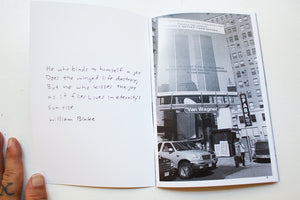 He who binds to himself a joy
Does the winged life destroy
But he who kisses the joy
as it flies Lives in eternity's
Sun rise
William Blake
Van Wagner